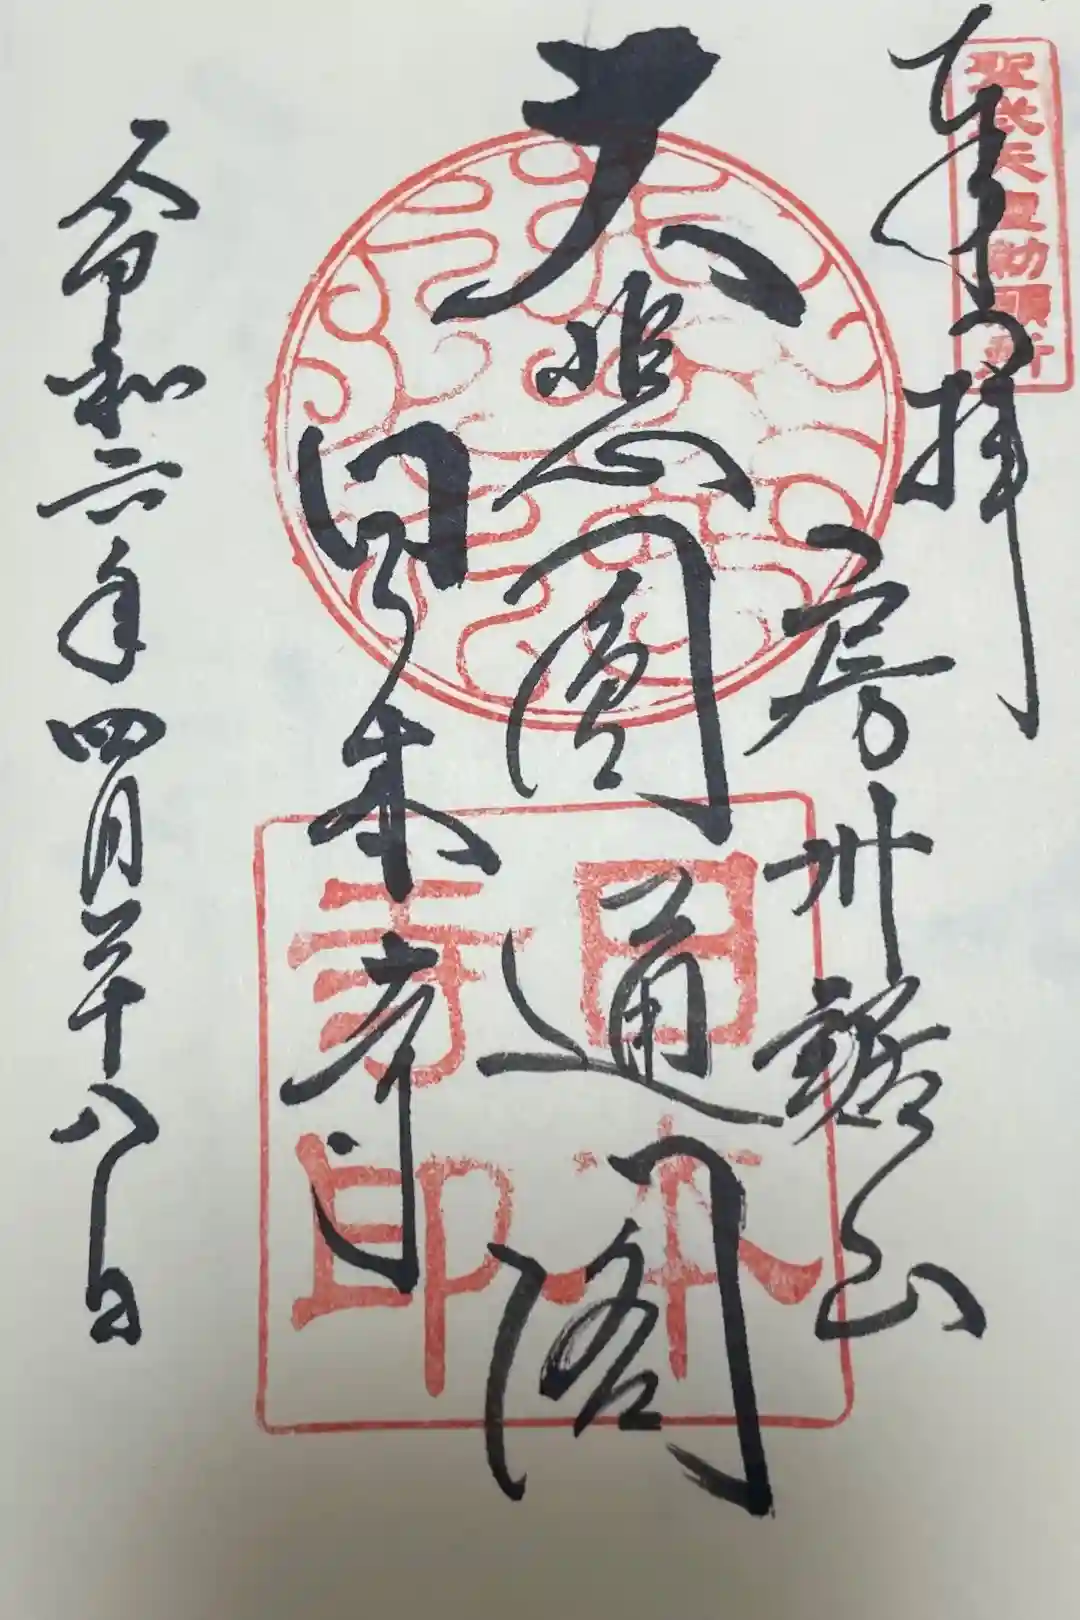 聖武天皇勅願所
奉拝
房州鋸山
大悲圓通閣
日本寺
令和六年四月二十八日
日本寺印